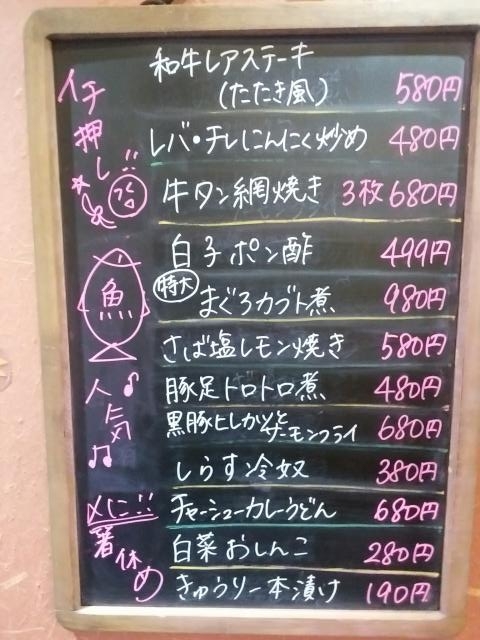 イチ押し!!
和牛レアステーキ
(たたき風) 580円
レバ・チレにんにく炒め 480円
牛タン網焼き 3枚 680円
魚
白子ポン酢 499円
特大 まぐろカブト煮 980円
さば塩レモン焼き 580円
人気
豚足トロトロ煮 480円
黒豚ヒレかつと
サーモンフライ 680円
しらす冷奴 380円
〆に!!
チャーシューカレーうどん 680円
箸休め
白菜おしんこ 280円
きゅうり一本漬け 190円